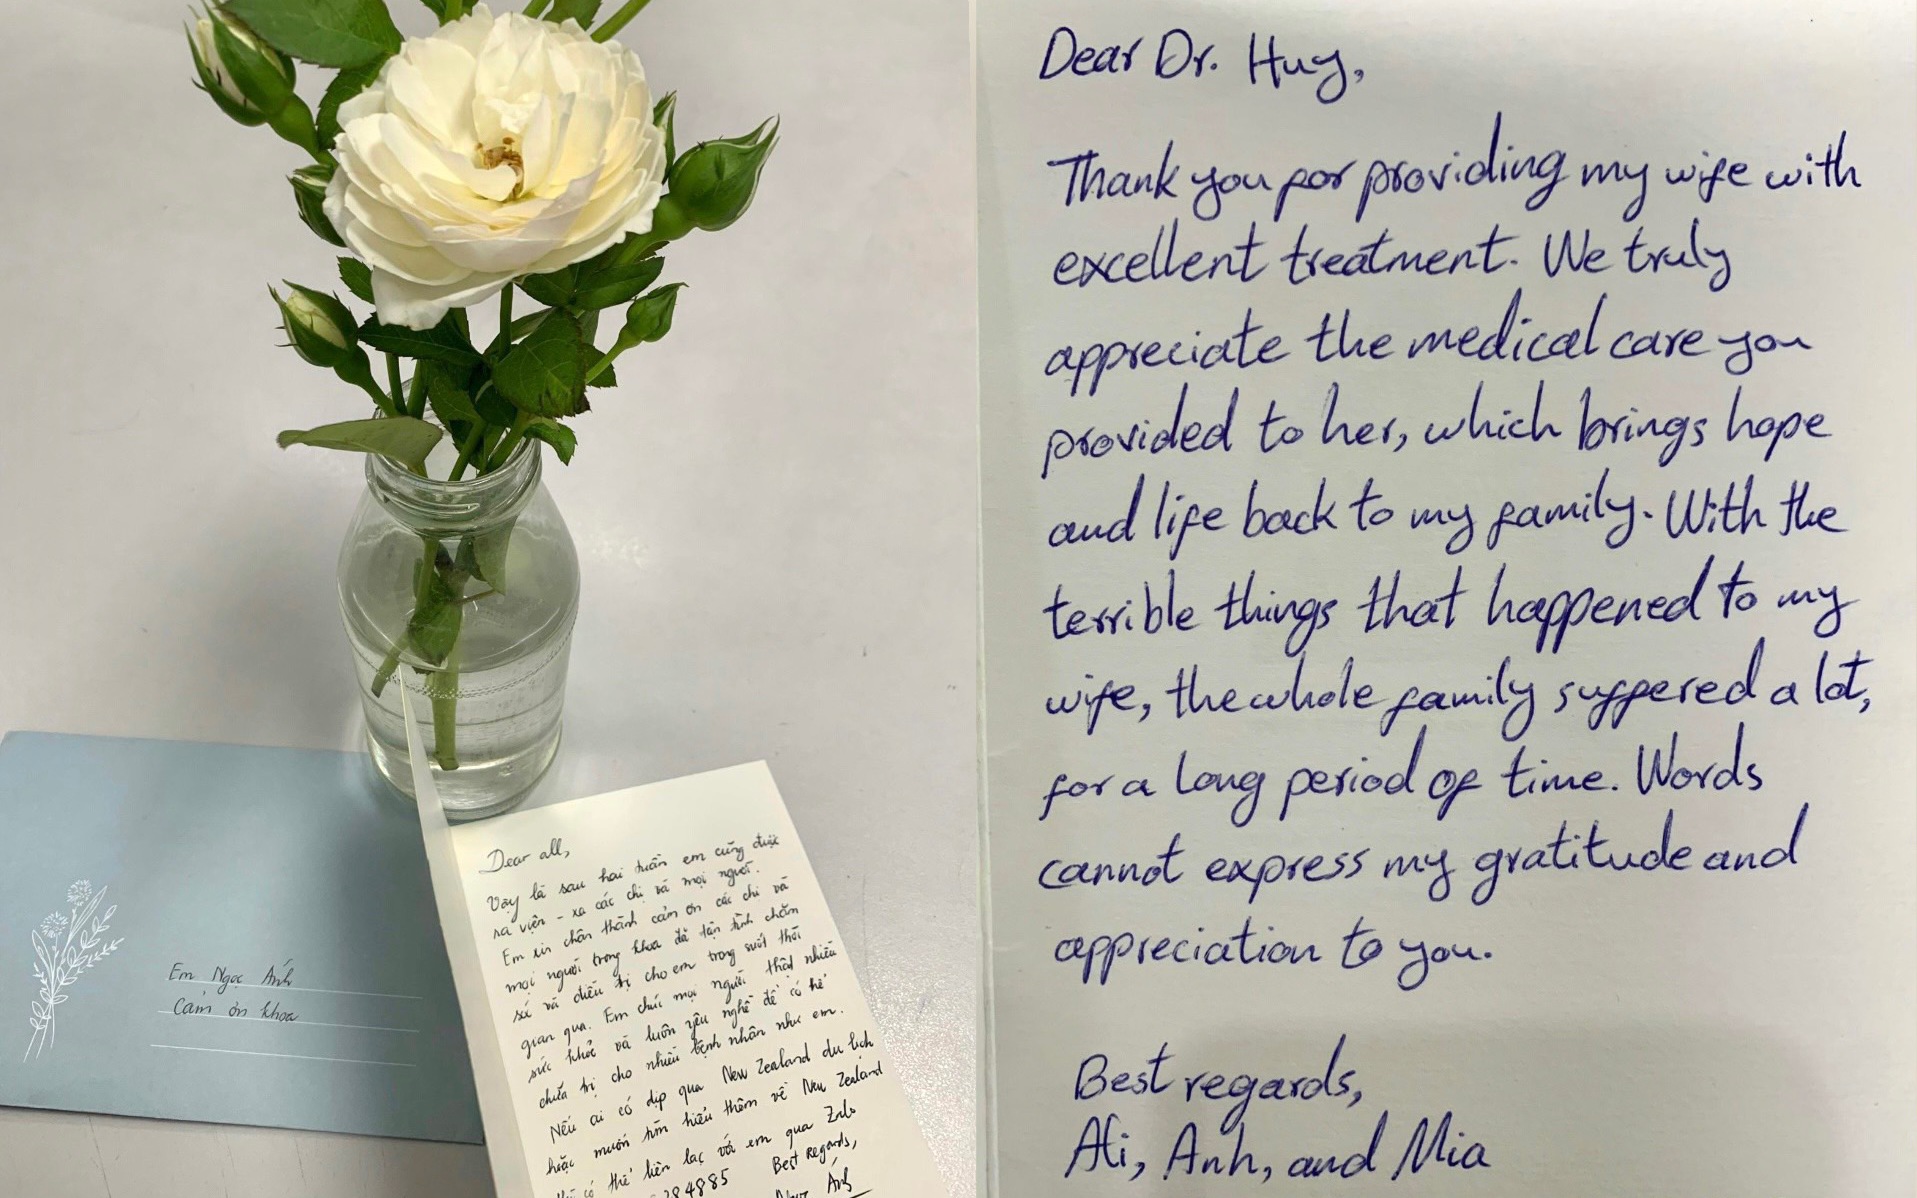 Em Ngọc Ánh
Cảm ơn khoa
Dear all,
Vậy là sau hai tuần em cũng được
ra viện - xa các chị và mọi người.
Em xin chân thành cảm ơn các chị và
mọi người trong khoa đã tận tình chăm
sóc và điều trị cho em trong suốt thời
gian qua. Em chúc mọi người thật nhiều
sức khỏe và luôn yêu nghề để có thể
chữa trị cho nhiều bệnh nhân như em.
Nếu ai có dịp qua New Zealand du lịch
hoặc muốn tìm hiểu thêm về New Zealand
có thể liên lạc với em qua Zalo
84885 Best regards,
Ánh
Dear Dr. Huy,
Thank you for providing my wife with
excellent treatment. We truly
appreciate the medical care you
provided to her, which brings hope
and life back to my family. With the
terrible things that happened to my
wife, the whole family suffered a lot,
for a long period of time. Words
cannot express my gratitude and
appreciation to you.
Best regards,
Ali, Anh, and Mia